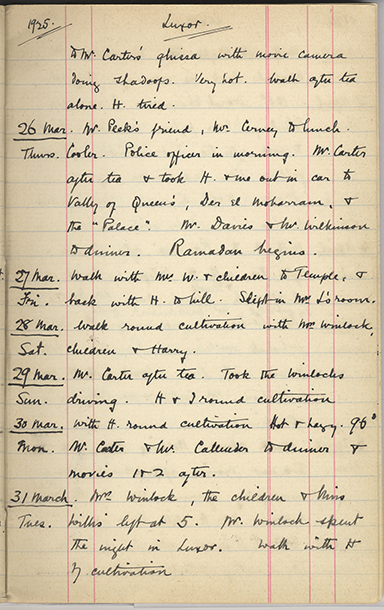 1925.
Luxor.
to Mr. Carter's ghissa with movie camera
doing Shadoofs. Very hot. Walk after tea
alone. H. tired.
26 Mar. Mr. Peek's friend, Mr. Cerney to lunch.
Thurs. Cooler. Police officer in morning. Mr Carter
after tea & took H. & me out in car to
Vally of Queen's, Der El Moharram, &
the "Palace". Mr. Davies & Mr. Wilkinson
to dinner. Ramadan begins.
27 Mar. Walk with Mrs W. & children to Temple, &
Fri. back with H. to hill. Slept in Mrs L's room.
28 Mar. Walk round cultivation with Mrs Winlock,
Sat. children & Harry.
29 Mar. Mr. Carter after tea. Took the Winlocks
Sun. driving. H & I round cultivation
30 Mar. with H. round cultivation Hot & heavy. 96°
Mon. Mr. Carter & Mr. Callender to dinner &
movies 1 & 2 after.
31 March. Mrs Winlock, the children & Miss
Tues. Willis left at 5. Mr. Winlock spent
the night in Luxor. Walk with H
by cultivation